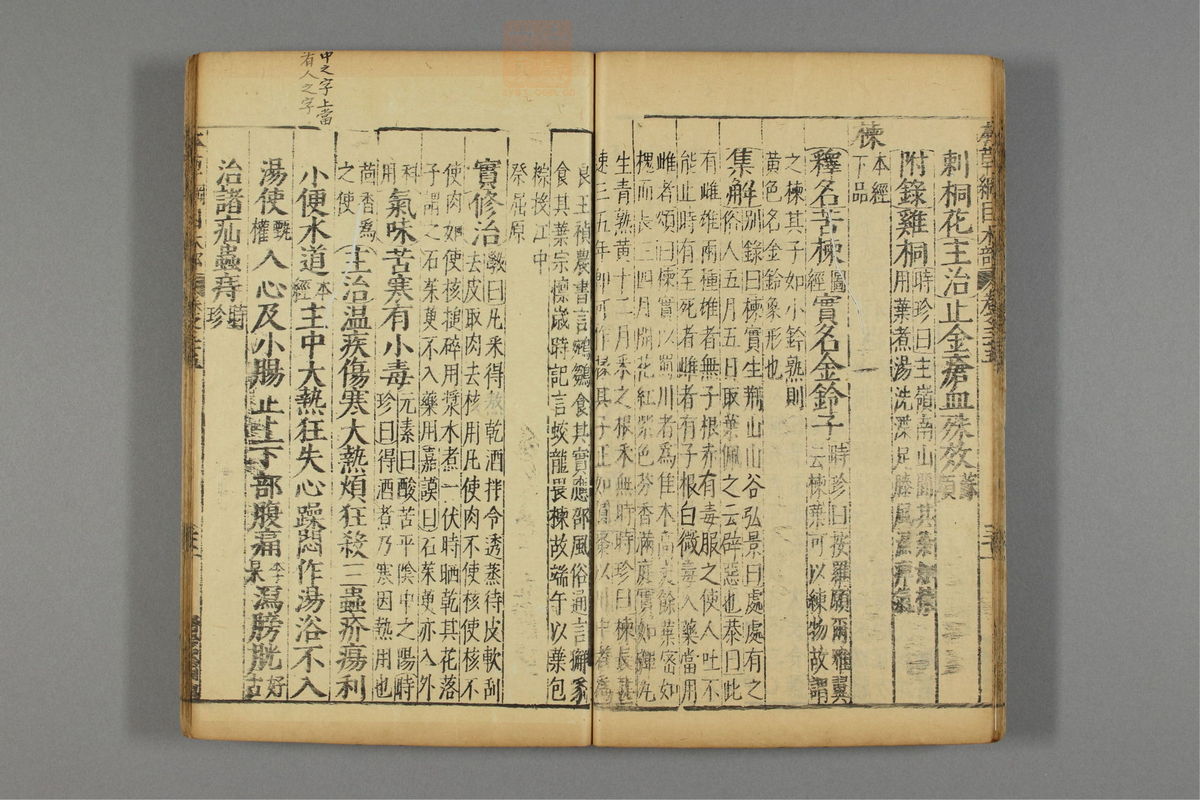 刺桐花主治止金瘡血殊效蘇頌
附錄雞桐時珍曰主嶺南山間其葉
用葉煮湯洗漬足膝風濕痹氣
楝本經
下品
釋名苦楝圖經實名金鈴子時珍曰按羅願爾雅翼
云楝葉可以練物故謂
之楝其子如小鈴熟則
黃色名金鈴象形也
集解別錄曰楝實生荊山山谷弘景曰處處有之
俗人五月五日取葉佩之云辟惡也恭曰此
有雌雄兩種雄者無子根赤有毒服之使人吐不
能止時有至死者雌者有子根白微毒入藥當用
雌者頌曰楝實以蜀川者為佳木高丈餘葉密如
槐而長三四月開花紅紫色芬香滿庭實如彈丸
生青熟黃十二月采之根采無時時珍曰楝長甚
速三五年即可作椽其子正如圓棗以川中者為
良王禎農書言鵷鶵食其實應邵風俗通言獬豸
食其葉宗懍歲時記言蛟龍畏楝故端午以葉包
粽投江中
祭屈原
實修治斅曰凡采得熬乾酒拌令透蒸待皮軟刮
去皮取肉去核用凡使肉不使核使核不
使肉如使核搥碎用漿水煮一伏時晒乾其花落
子謂之石茱萸不入藥用嘉謨曰石茱萸亦入外
科
用氣味苦寒有小毒元素曰酸苦平陰中之陽時
珍曰得酒煮乃寒因熱用也
茴香為
之使主治溫疾傷寒大熱煩狂殺三蟲疥瘍利
小便水道本經主中大熱狂失心躁悶作湯浴不入
湯使甄權入心及小腸止上下部腹痛李杲瀉膀胱好古
治諸疝蟲痔時珍
中之字上當
有人之字
本草綱目木部